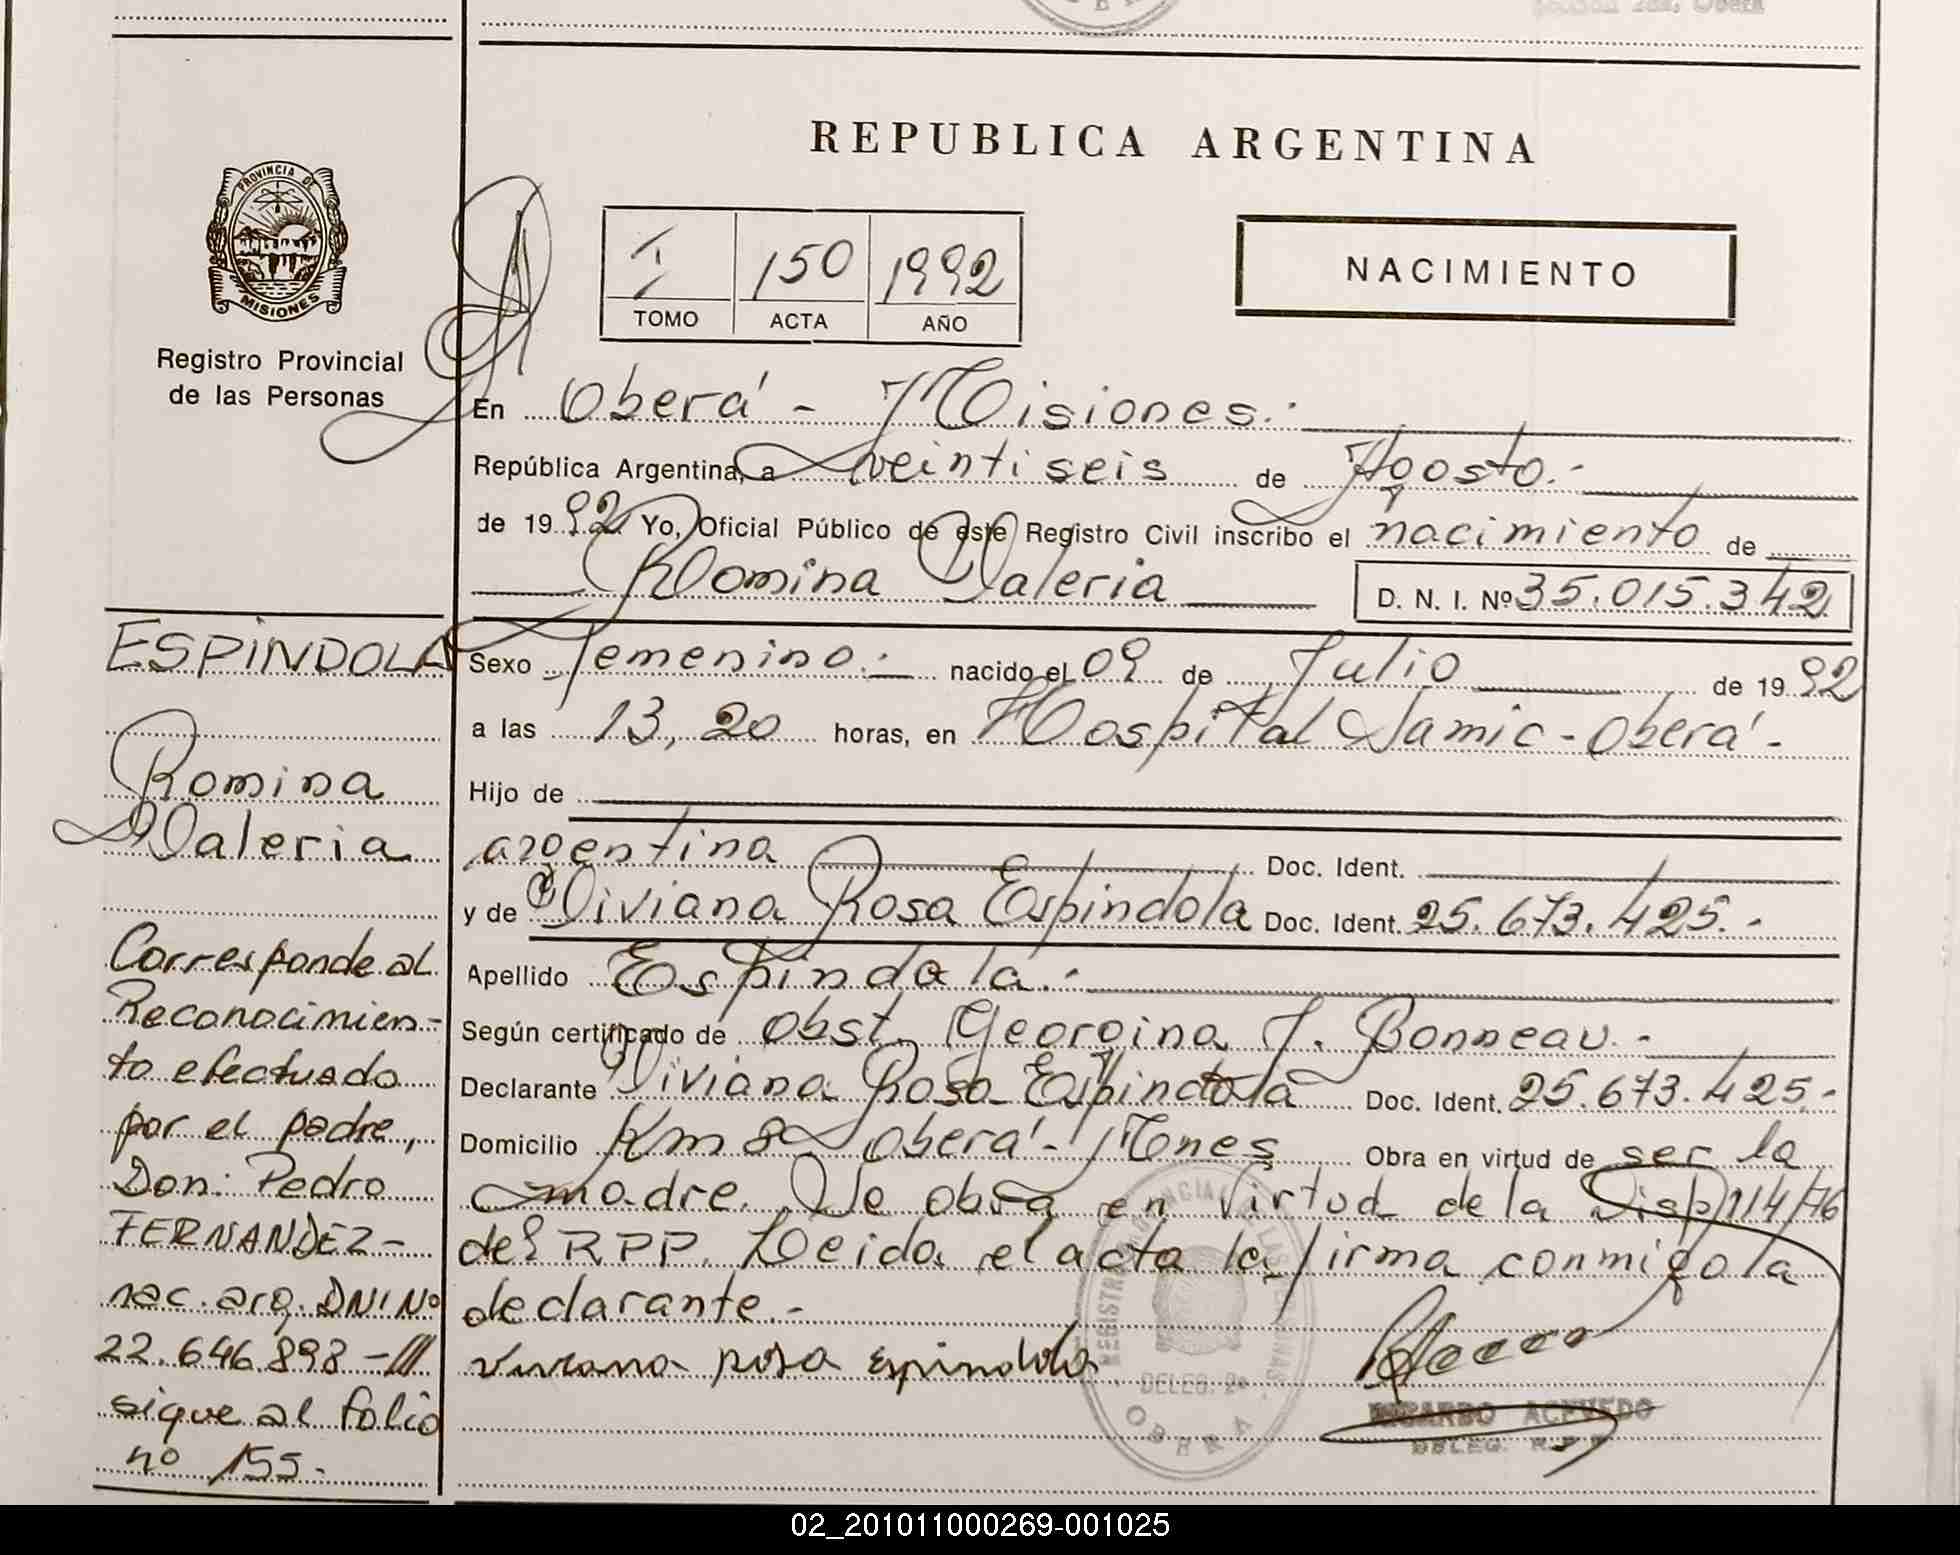 Sección 2da. Oberá
REPUBLICA ARGENTINA
PROVINCIA DE
MISIONES
Registro Provincial
de las Personas
I 150 1992
TOMO ACTA AÑO
NACIMIENTO
En Oberá - Misiones.-
República Argentina, a veintiseis de Agosto.-
de 1992 Yo, Oficial Público de este Registro Civil inscribo el nacimiento de
Romina Valeria D. N. I. Nº 35.015.342
Sexo femenino.- nacido el 09 de Julio de 1992
a las 13,20 horas, en Hospital Samic - Oberá -
Hijo de
argentina Doc. Ident.
y de Viviana Rosa Espindola Doc. Ident. 25.673.425.-
Apellido Espindola.-
Según certificado de obst. Georgina J. Bonneau.-
Declarante Viviana Rosa Espindola Doc. Ident. 25.673.425.-
Domicilio Km 8 Oberá - Mnes Obra en virtud de ser la
madre. Se obra en virtud de la Disp 114/76
del RPP. Leida el acta la firma conmigo la
declarante.-
Viviana rosa espindola
ESPINDOLA
Romina
Valeria
Corresponde al
Reconocimien-
to efectuado
por el padre,
Don: Pedro
FERNANDEZ -
nac. arg. DNI Nº
22.646.898 -///
sigue al folio
nº 155.-
DELEG. 2ª
OBERA
RICARDO ACEVEDO
DELEG. R.P.P.
02_201011000269-001025